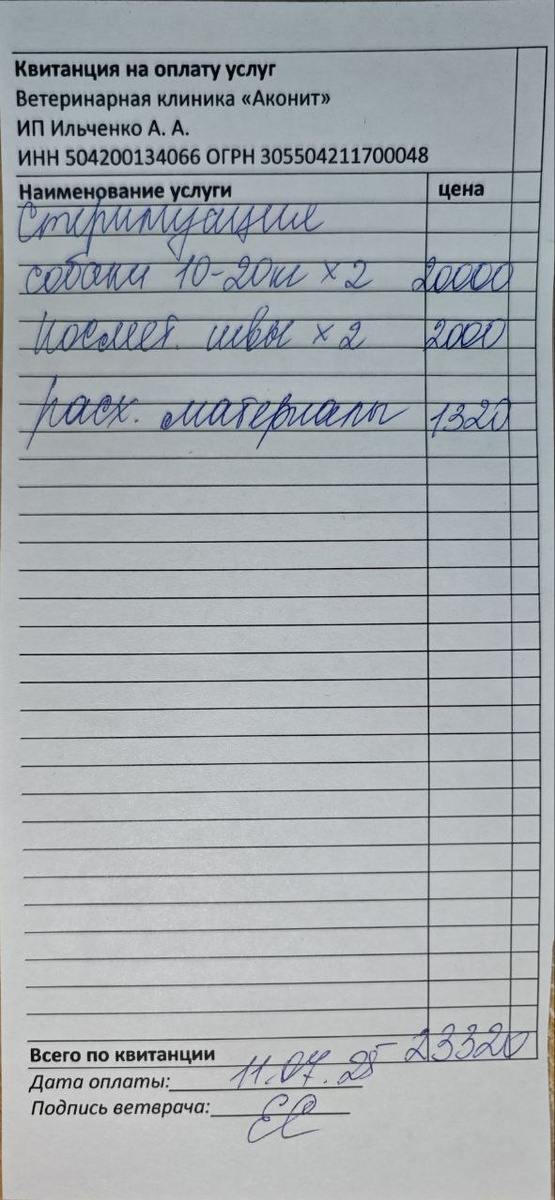 Квитанция на оплату услуг
Ветеринарная клиника «Аконит»
ИП Ильченко А. А.
ИНН 504200134066 ОГРН 305504211700048
Наименование услуги цена
Стерилизация
собаки 10-20кг х 2 20000
Космет. швы х 2 2000
расх. материалы 1320
Всего по квитанции 23320
Дата оплаты: 11.07.25
Подпись ветврача: